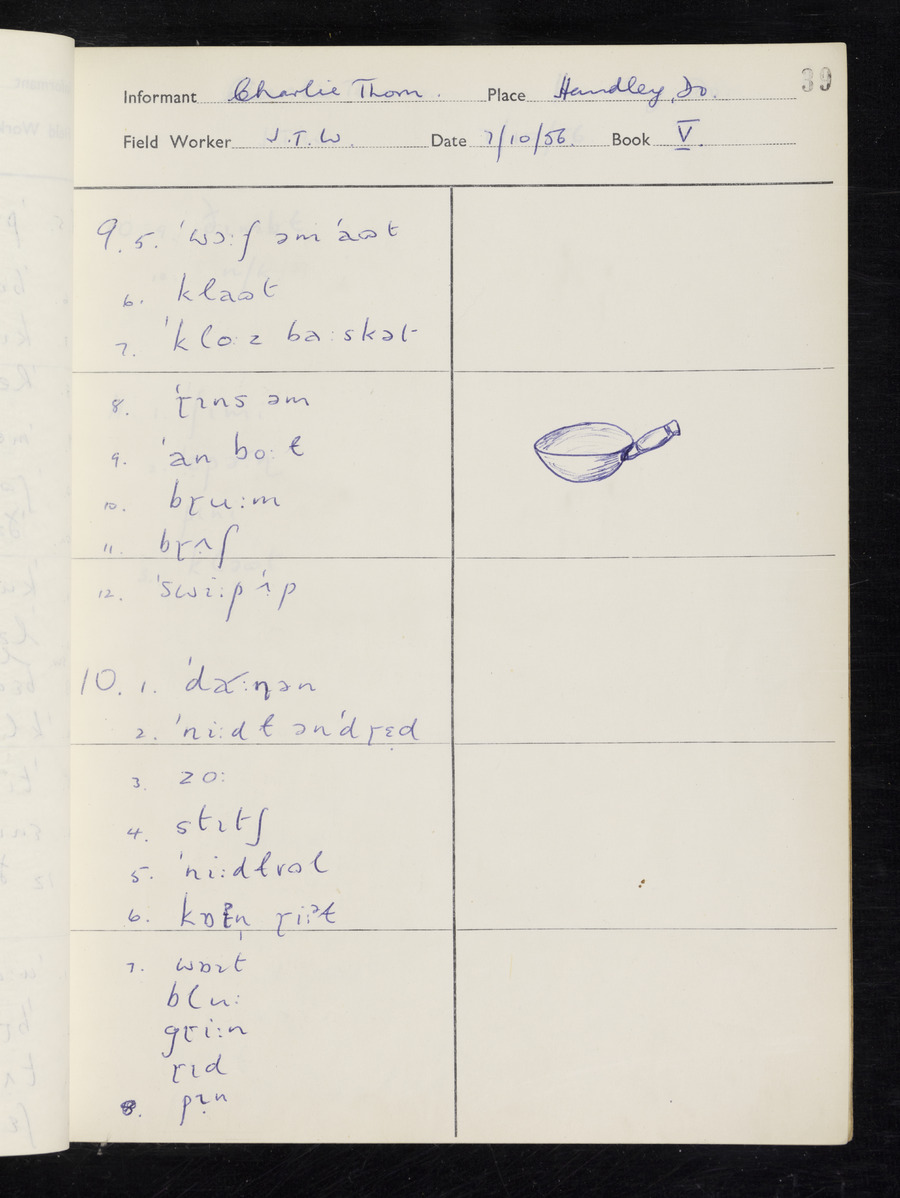 39
Informant Charlie Thom. Place Handley, Do.
Field Worker J.T.W. Date 7/10/56. Book V.
9. 5. ˈwɔ:ʃ əm ˈaʊt
6. klaʊt
7. ˈklo:z ba:skət
8. ˈɽɪns əm
9. ˈan bo:ɫ
10. bɽu:m
11. bɽʌʃ
12. ˈswi:p ˈʌp
10. 1. ˈdæ:ɳən
2. ˈni:dɫ ənˈdɽɛd
3. zo:
4. stɪtʃ
5. ˈni:dlvʊl
6. kɒʔn̩ ɽi:ᵊɫ
7. wɒɪt
blu:
gɽi:n
ɽɪd
8. pɪn